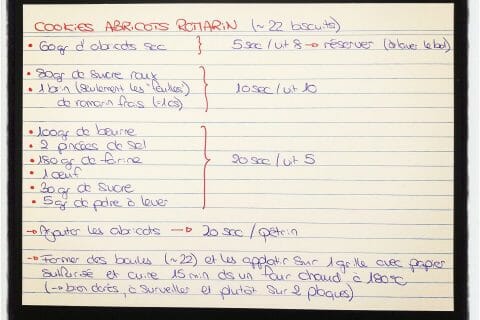 COOKIES ABRICOTS ROMARIN (~22 biscuits)
• 60gr d'abricots sec } 5 sec / vit 8 → réserver (ô laver le bol)
• 80gr de sucre roux
• 1 brin (seulement les "feuilles")
de romarin frais (~10s) } 10 sec / vit 10
• 100gr de beurre
• 2 pincées de sel
• 180gr de farine
• 1 œuf } 20 sec / vit 5
• 30gr de sucre
• 5gr de pdre à lever
→ Ajouter les abricots → 20 sec / pétrin
→ Former des boules (~22) et les applatir sur 1 grille avec papier
sulfurisé et cuire 15 min ds un four chaud à 180°C
(→ bien dorés, à surveiller et plutôt sur 2 plaques)